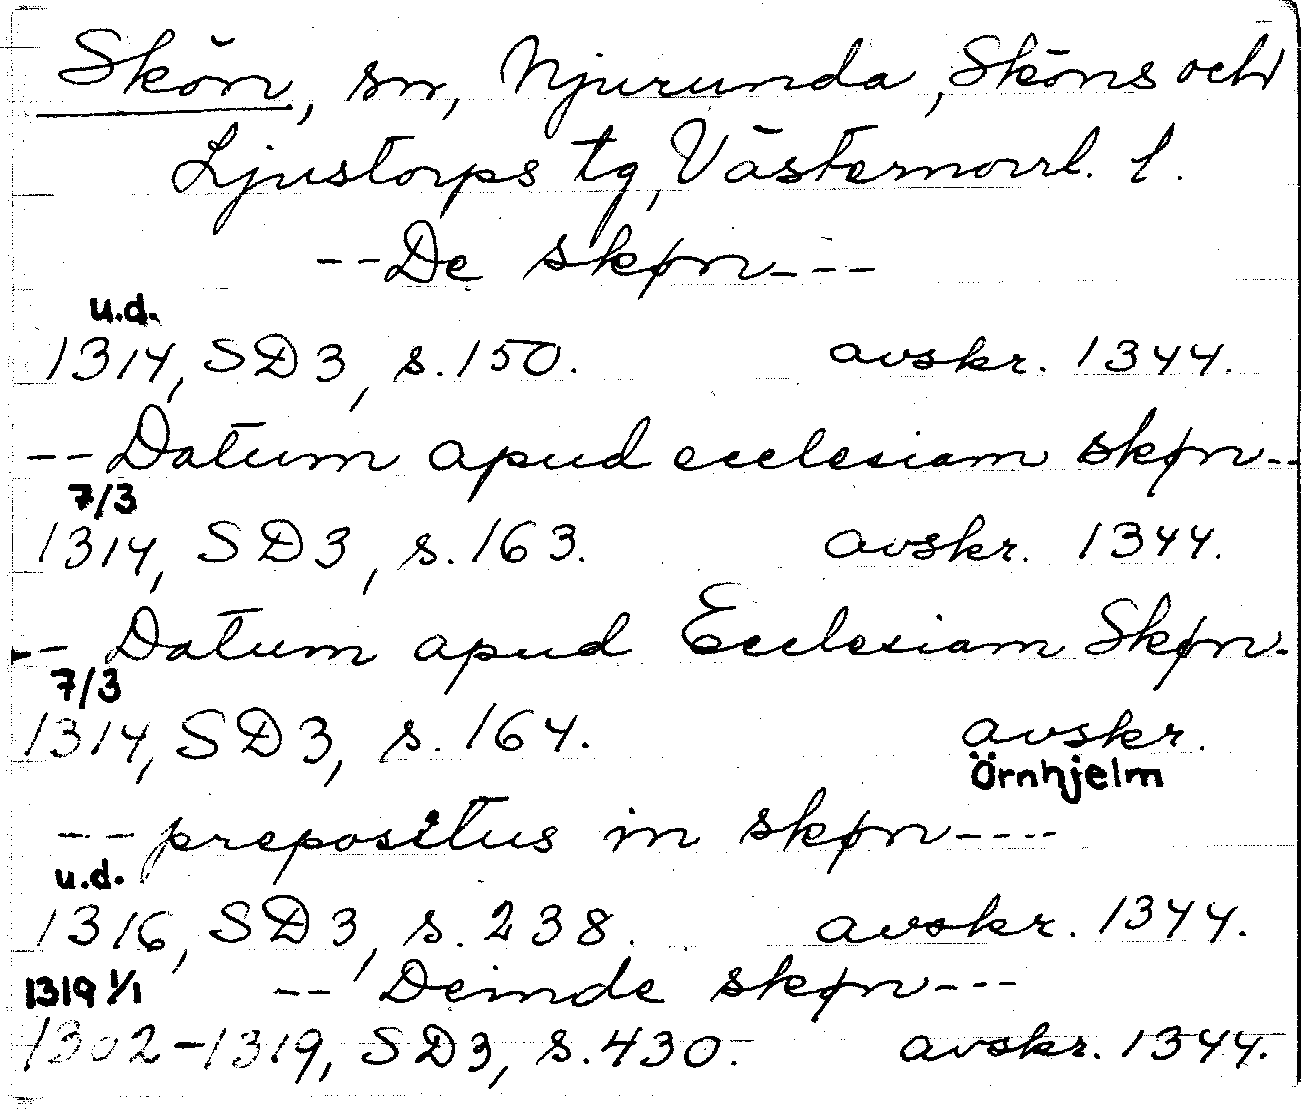 Skön, sn, Njurunda, Sköns och
Ljustorps tg, Västernorrl. l.
--De skøn---
u.d.
1314, SD3, s.150. avskr. 1344.
-- Datum apud ecclesiam skøn--
7/3
1314, SD3, s.163. avskr. 1344.
-- Datum apud Ecclesiam Skøn-
7/3
1314, SD3, s.164. avskr.
Örnhjelm
-- prepositus in skøn----
u.d.
1316, SD3, s.238. avskr. 1344.
1319 1/1 -- Deinde skøn---
1302-1319, SD3, s.430. avskr. 1344.